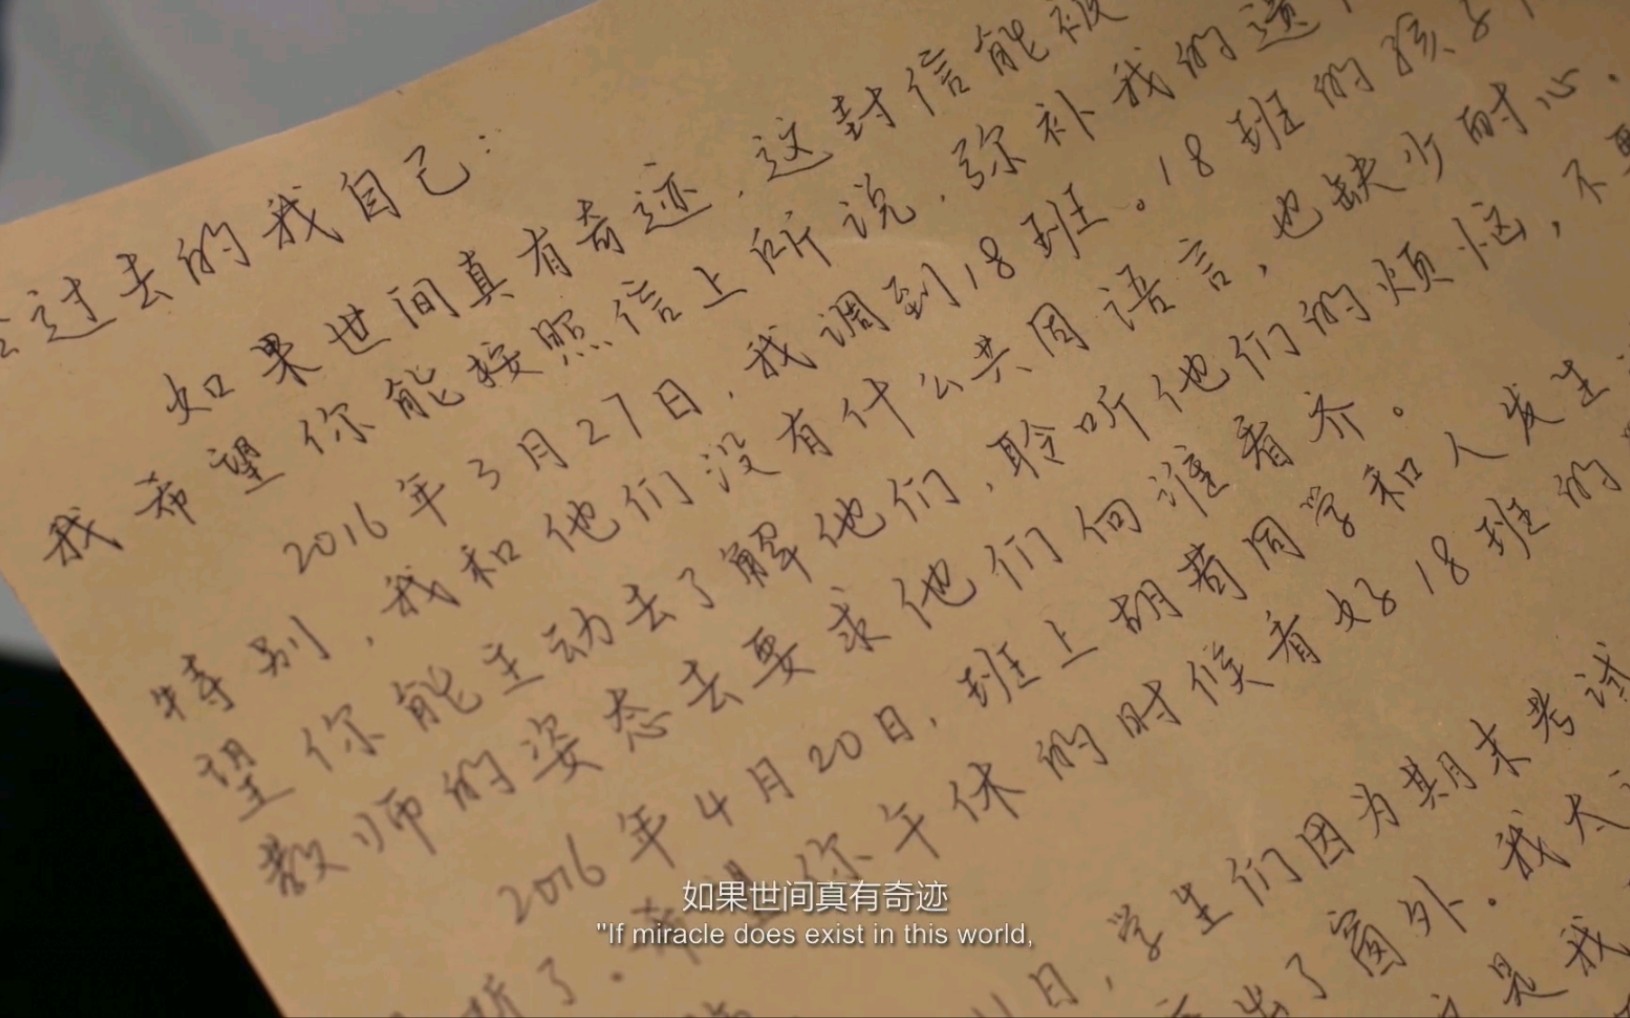 过去的我自己：
如果世间真有奇迹，这封信能被
我希望你能按照信上所说，弥补我的遗
2016年3月27日，我调到18班。18班的孩子
特别，我和他们没有什么共同语言，也缺少耐心，
望你能主动去了解他们，聆听他们的烦恼，不要
教师的姿态去要求他们向谁看齐。
2016年4月20日，班上胡荀同学和人发生
了。希望你午休的时候看好18班的
11日，学生们因为期末考试
出了窗外。我太
是我
如果世间真有奇迹
"If miracle does exist in this world,